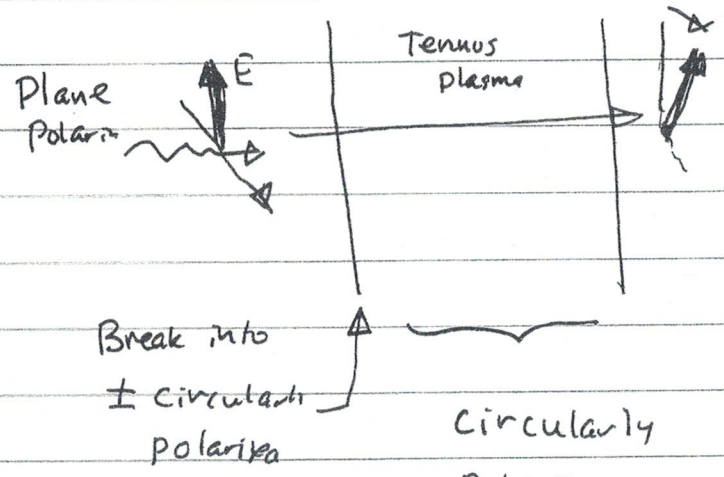 Plane
Polariz
E
Tenuus
plasma
Break into
± circularly
polarized
circularly